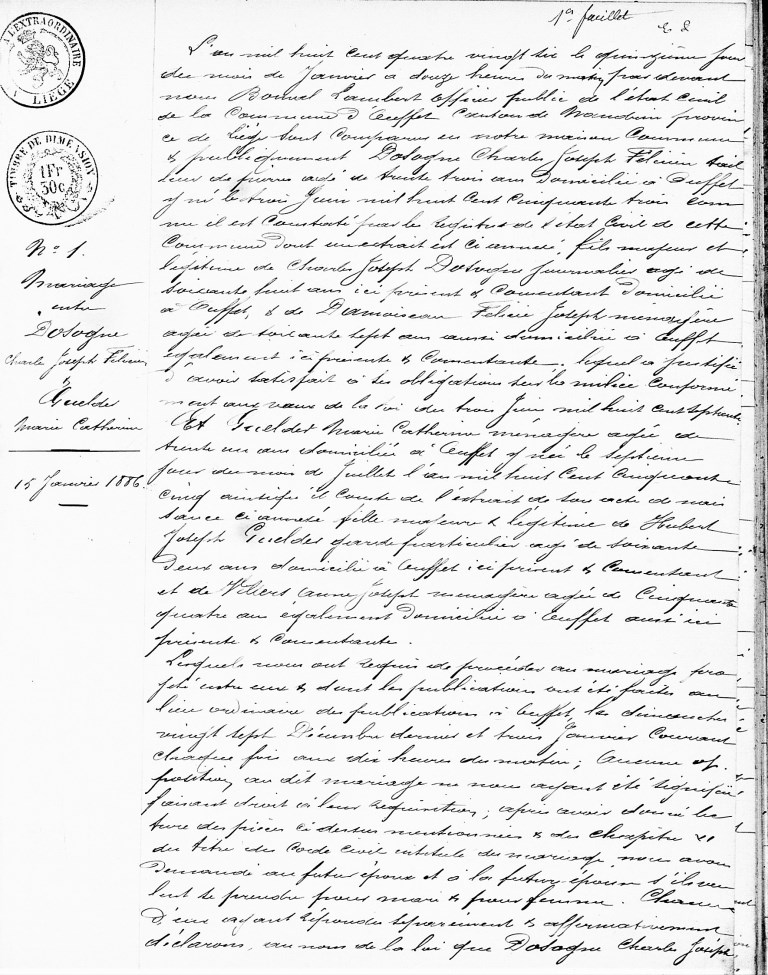 1er feuillet
A L'EXTRAORDINAIRE
LIEGE
TIMBRE DE DIMENSION
1 Fr
50c
N° 1.
Mariage
entre
Dosogne
Charle Joseph Félicien
&
Guelder
Marie Catherine
15 Janvier 1886.
L'an mil huit cent quatre vingt six le quinzième jour
du mois de Janvier à douze heures du matin par devant
nous Lambert officier public de l'état civil
de la Commune d'Ouffet Canton de Nandrin provin
ce de Liége sont comparus en notre maison Commune
& publiquement Dosogne Charles Joseph Félicien tail
leur de pierres agé de trente trois ans domicilié à Ouffet
y né le trois Juin mil huit cent cinquante trois com
me il est constaté par le registre de l'état civil de cette
Commune dont un extrait est ci annexé, fils majeur et
légitime de Charles Joseph Dosogne journalier agé de
soixante huit ans ici présent & consentant domicilié
à Ouffet, & de Damoiseau Félicie Joseph ménagère
agée de soixante sept ans aussi domiciliée à Ouffet
également ici présente & consentante. lequel a justifié
d'avoir satisfait à ses obligations sur la milice conformé
ment aux vœux de la loi du trois Juin mil huit cent septante
Et Guelder Marie Catherine ménagère agée de
trente un ans domiciliée à Ouffet y née le septième
jour du mois de Juillet l'an mil huit cent cinquante
cinq ainsi qu'il conste de l'extrait de son acte de nais
sance ci annexé fille majeure & légitime de Hubert
Joseph Guelder garde particulier agé de soixante
deux ans domicilié à Ouffet ici présent & consentant
et de Villers Anne Joseph ménagère agée de cinquante
quatre ans également domiciliée à Ouffet aussi ici
présente & consentante.
Lesquels nous ont requis de procéder au mariage pro
jeté entre eux & dont les publications ont été faites au
lieu ordinaire des publications à Ouffet, les dimanches
vingt sept Décembre dernier et trois Janvier courant
chaque fois aux dix heures du matin; aucune op
position au dit mariage ne nous ayant été signifiée
faisant droit à leur réquisition; après avoir donné lec
ture des pièces ci dessus mentionnées & du chapitre VI
du titre du Code Civil intitulé du mariage, nous avons
demandé au futur époux et à la future épouse s'ils veu
lent se prendre pour mari & pour femme. Chacun
d'eux ayant répondu séparément & affirmativement
déclarons, au nom de la loi que Dosogne Charles Joseph